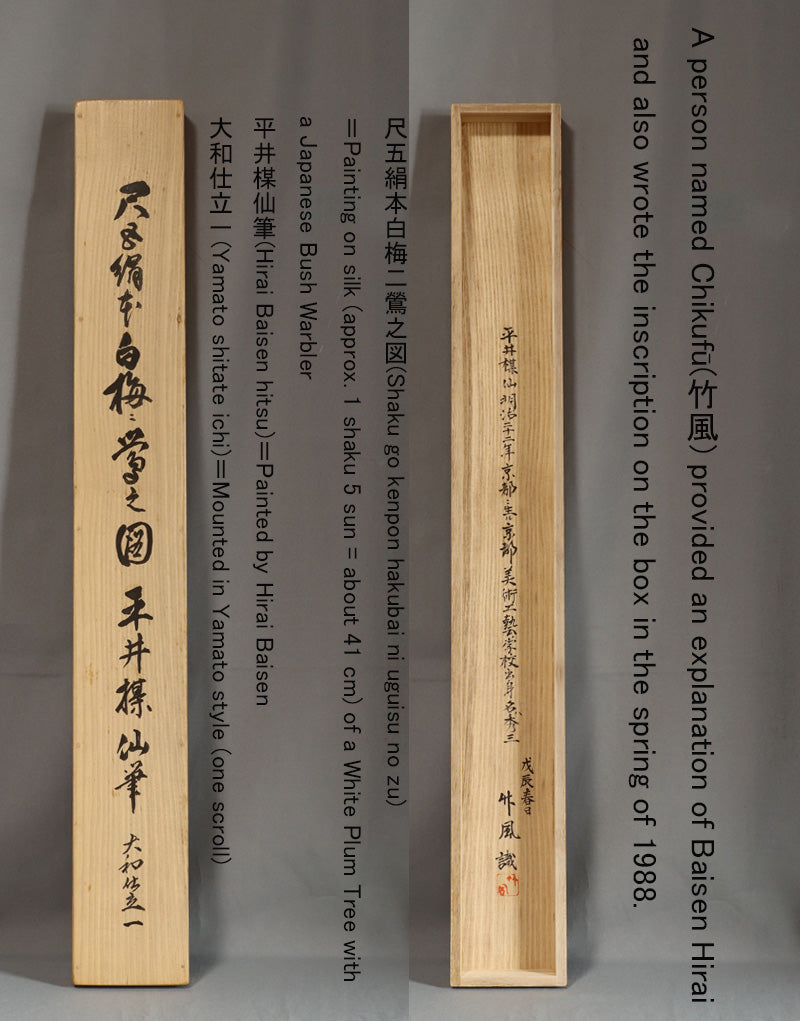 尺五絹本白梅ニ鶯之図 平井楳仙筆 大和仕立一
尺五絹本白梅二鶯之図(Shaku go kenpon hakubai ni uguisu no zu)
=Painting on silk (approx. 1 shaku 5 sun = about 41 cm) of a White Plum Tree with
a Japanese Bush Warbler
平井楳仙筆(Hirai Baisen hitsu)=Painted by Hirai Baisen
大和仕立一(Yamato shitate ichi)=Mounted in Yamato style (one scroll)
平井楳仙明治二十二年京都ニ生ル京都美術工藝学校出身名秀三
戊辰春日
竹風識
A person named Chikufū(竹風) provided an explanation of Baisen Hirai
and also wrote the inscription on the box in the spring of 1988.